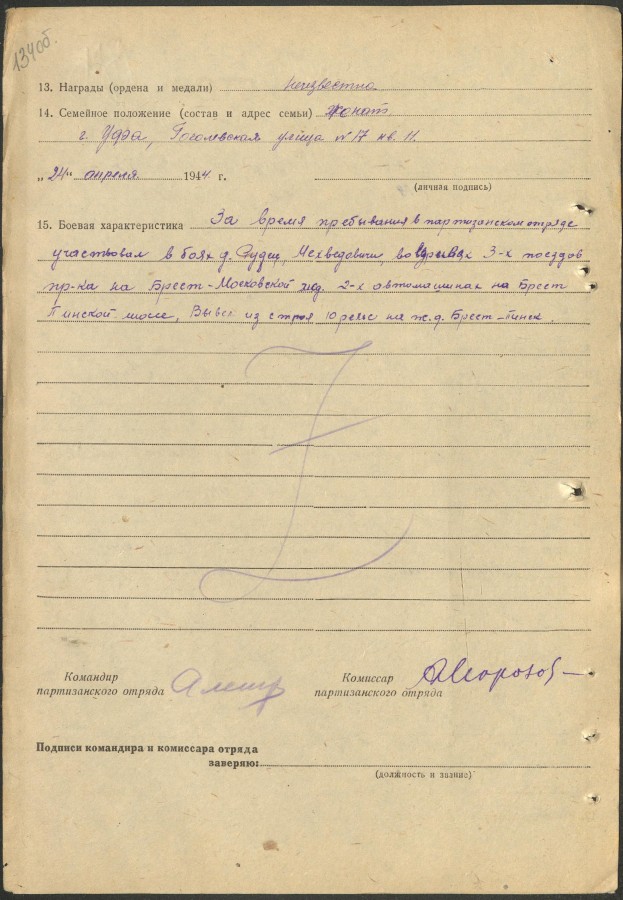 134об.
13. Награды (ордена и медали) неизвестно
14. Семейное положение (состав и адрес семьи) женат
г. Уфа, Гоголевская улица №17 кв. 11.
„24“ апреля 1944 г.
(личная подпись)
15. Боевая характеристика За время пребывания в партизанском отряде
участвовал в боях д. во взрывах 3-х поездов
пр-ка на Брест-Московской жд. 2-х автомашинах на Брест
Пинской шоссе, Вывел из строя 10 рельс на ж.д. Брест-Пинск.
Командир Комиссар
партизанского отряда партизанского отряда
Подписи командира и комиссара отряда
заверяю:
(должность и звание)